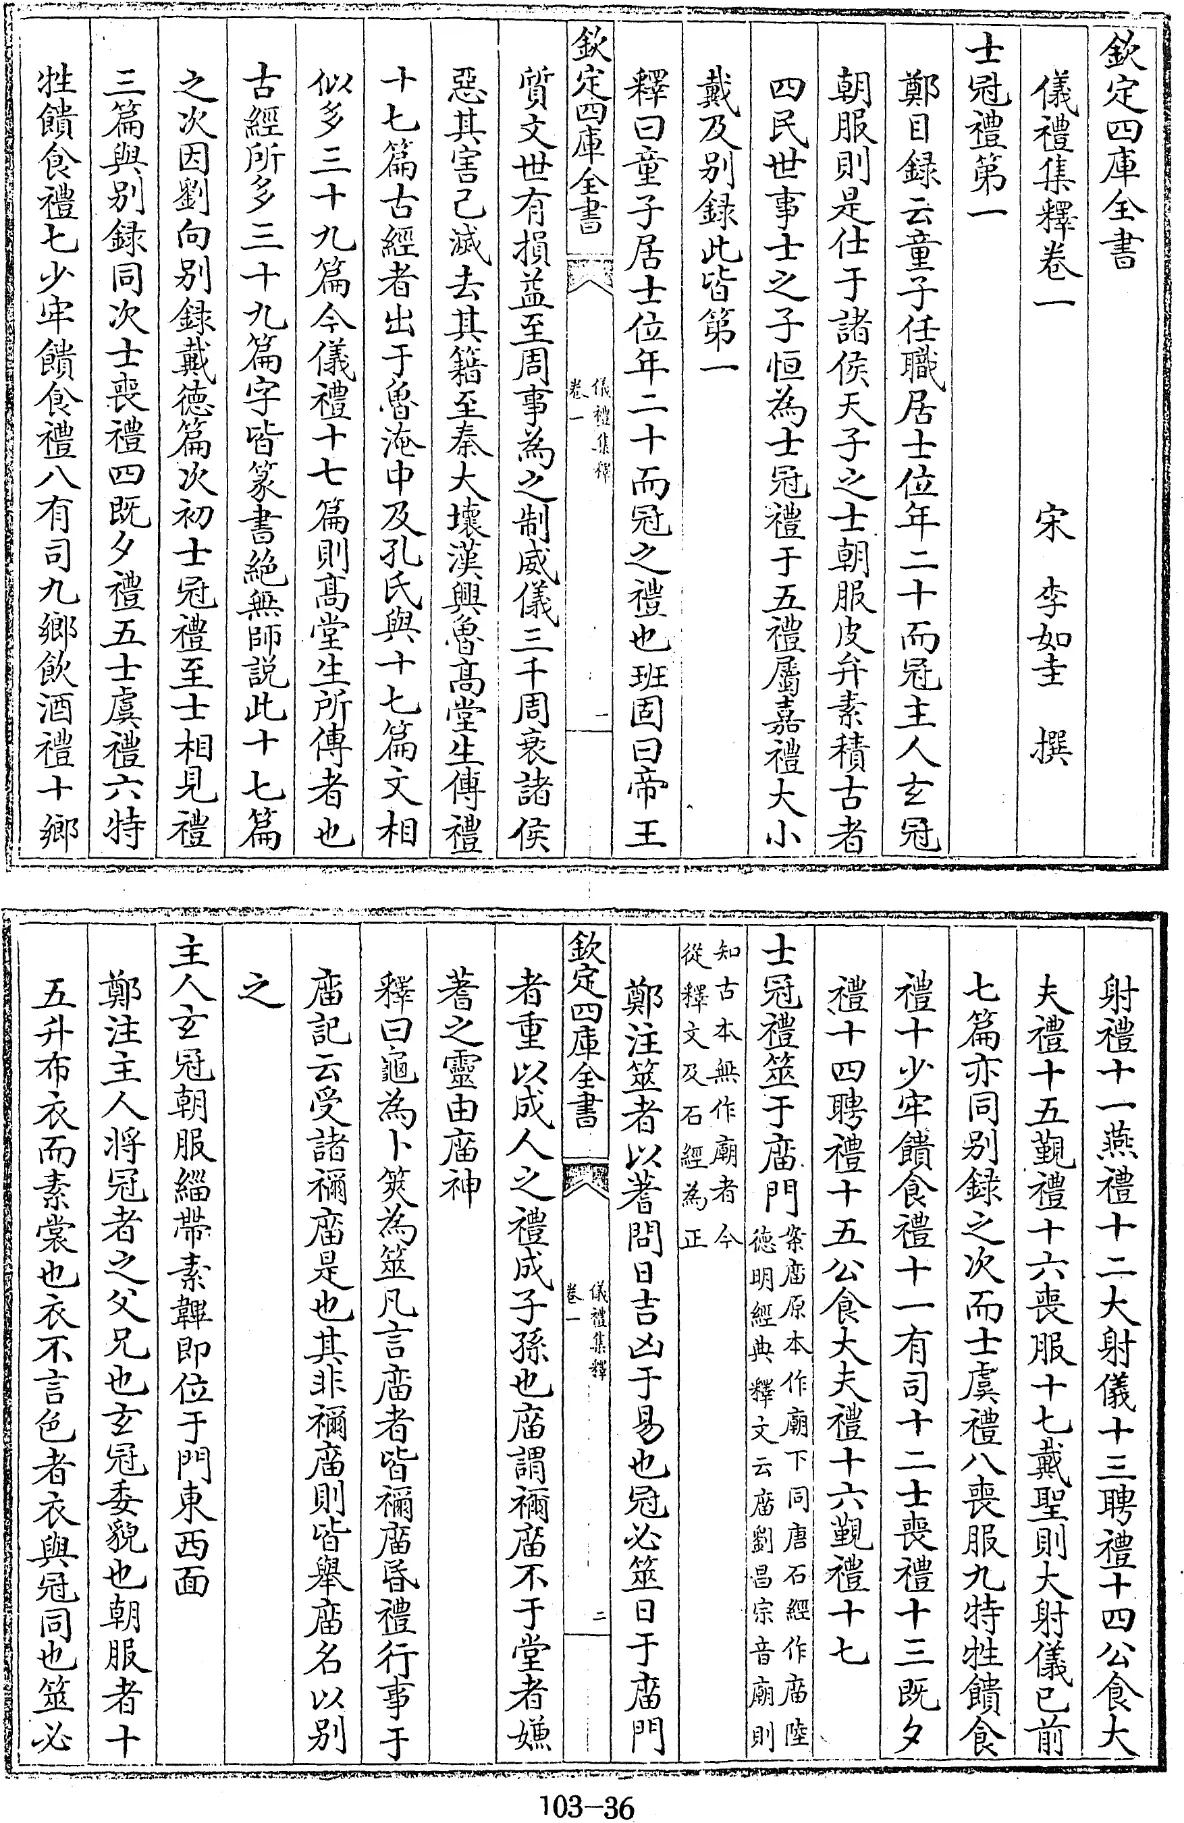 欽定四庫全書
儀禮集釋卷一
宋 李如圭 撰
士冠禮第一
鄭目録云童子任職居士位年二十而冠主人玄冠
朝服則是仕于諸侯天子之士朝服皮弁素積古者
四民世事士之子恒為士冠禮于五禮屬嘉禮大小
戴及别録此皆第一
釋曰童子居士位年二十而冠之禮也班固曰帝王
欽定四庫全書
儀禮集釋
卷一
一
質文世有損益至周事為之制威儀三千周衰諸侯
惡其害己滅去其籍至秦大壞漢興魯髙堂生傳禮
十七篇古經者出于魯淹中及孔氏與十七篇文相
似多三十九篇今儀禮十七篇則髙堂生所傳者也
古經所多三十九篇字皆篆書絶無師説此十七篇
之次因劉向别録戴徳篇次初士冠禮至士相見禮
三篇與别録同次士喪禮四既夕禮五士虞禮六特
牲饋食禮七少牢饋食禮八有司九鄉飲酒禮十鄉
射禮十一燕禮十二大射儀十三聘禮十四公食大
夫禮十五覲禮十六喪服十七戴聖則大射儀已前
七篇亦同别録之次而士虞禮八喪服九特牲饋食
禮十少牢饋食禮十一有司十二士喪禮十三既夕
禮十四聘禮十五公食大夫禮十六覲禮十七
士冠禮筮于庿門
案庿原本作廟下同唐石經作庿陸
徳明經典釋文云庿劉昌宗音廟則
知古本無作廟者今
從釋文及石經為正
鄭注筮者以蓍問日吉凶于易也冠必筮日于庿門
欽定四庫全書
儀禮集釋
卷一
二
者重以成人之禮成子孫也庿謂禰庿不于堂者嫌
蓍之靈由庿神
釋曰龜為卜筴為筮凡言庿者皆禰庿昏禮行事于
庿記云受諸禰庿是也其非禰庿則皆舉庿名以别
之
主人玄冠朝服緇帶素韠即位于門東西面
鄭注主人將冠者之父兄也玄冠委貌也朝服者十
五升布衣而素裳也衣不言色者衣與冠同也筮必
103-36